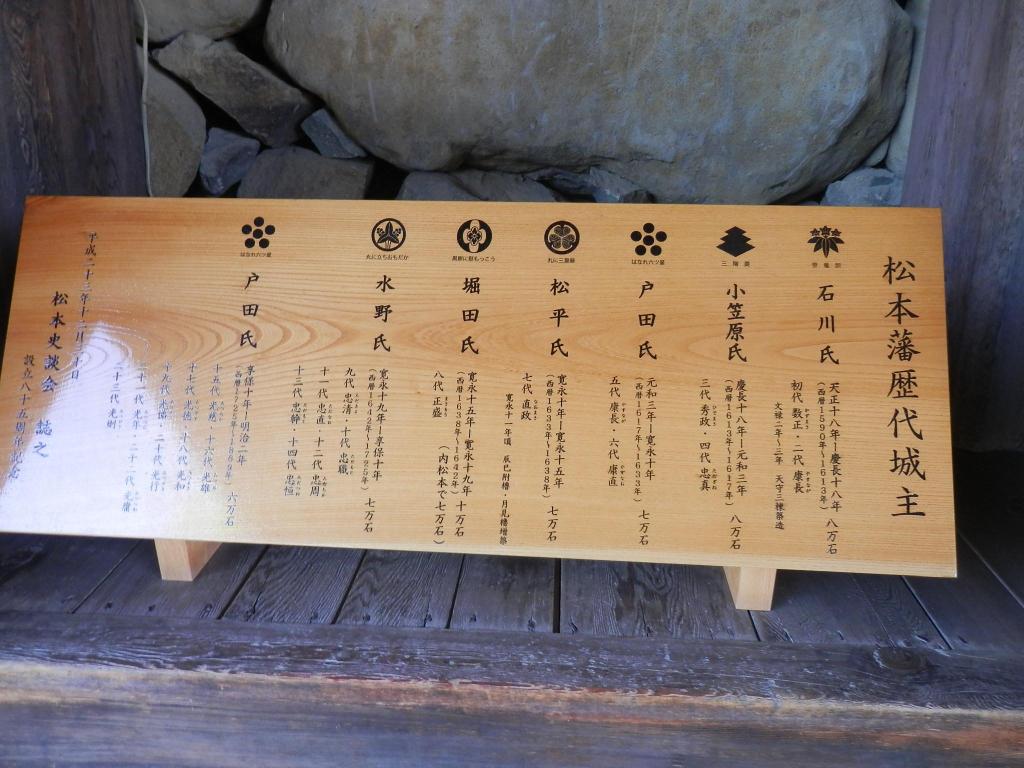 松本藩歴代城主
笹竜胆
石川氏
天正十八年ー慶長十八年 八万石
(西暦1590年〜1613年)
初代 数正・二代 康長
かずまさ やすなが
文禄二年〜三年 天守三棟築造
三階菱
小笠原氏
慶長十八年ー元和三年 八万石
(西暦1613年〜1617年)
三代 秀政・四代 忠真
ひでまさ ただざね
はなれ六ツ星
戸田氏
元和三年ー寛永十年 七万石
(西暦1617年〜1633年)
五代 康長・六代 康直
やすなが やすなお
丸に三葉葵
松平氏
寛永十年ー寛永十五年 七万石
(西暦1633年〜1638年)
七代 直政
なおまさ
寛永十一年頃 辰巳附櫓・月見櫓増築
黒餅に竪もっこう
堀田氏
寛永十五年ー寛永十九年 十万石
(西暦1638年〜1642年) (内松本で七万石)
八代 正盛
まさもり
丸に立ちおもだか
水野氏
寛永十九年ー享保十年 七万石
(西暦1642年〜1725年)
九代 忠清・十代 忠職
ただきよ ただもと
十一代 忠直・十二代 忠周
十三代 忠幹・十四代 忠恒
はなれ六ツ星
戸田氏
享保十年ー明治二年 六万石
(西暦1725年〜1869年)
十五代 光慈・十六代 光雄
十七代 光徳・十八代 光和
十九代 光悌・二十代 光行
二十一代 光年・二十二代 光庸
二十三代 光則
平成二十三年十二月二十日
松本史談会 誌之
設立八十五周年記念